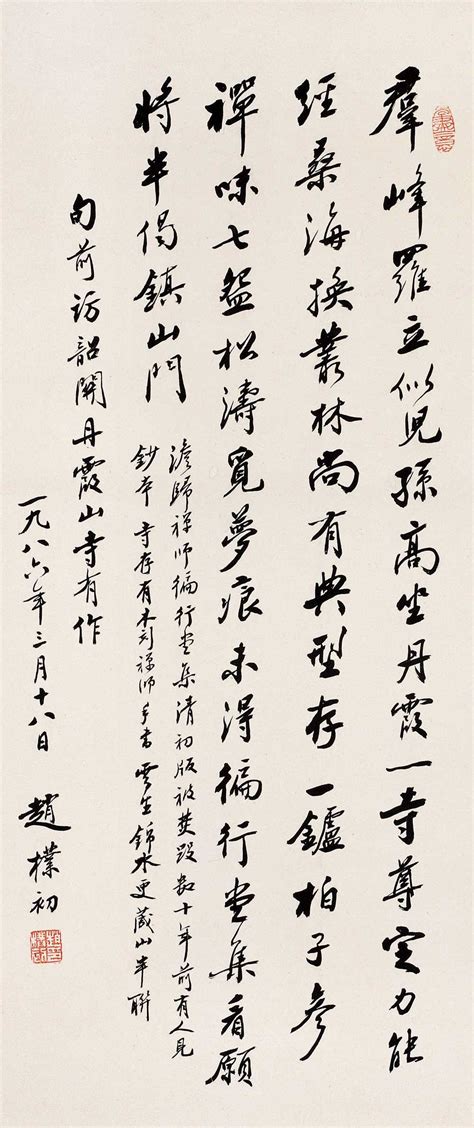 羣峰羅立似兒孫高坐丹霞一寺尊定力能
經桑海換叢林尚有典型存一鑪柏子參
禪味七盌松濤覓夢痕未得徧行堂集看願
將半偈鎮山門
澹歸禅师徧行堂集清初版被焚毁數十年前有人見
鈔本 寺存有木刻禅师手書 雲生錦水更藏山半聯
旬前访韶關丹霞山寺有作
一九八六年三月十八日 趙樸初